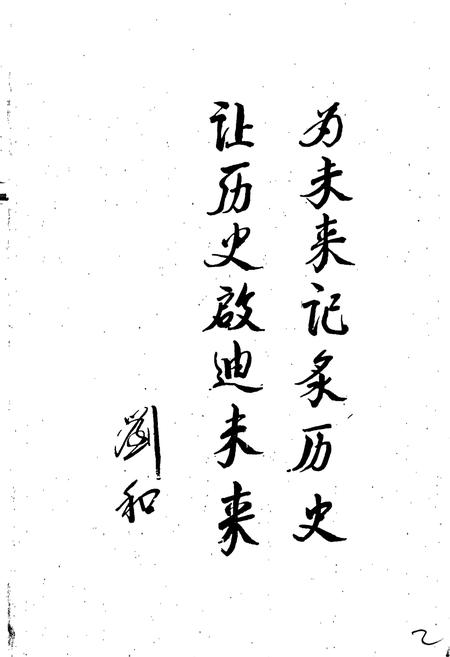 为未来记录历史
让历史啟迪未来
劉和